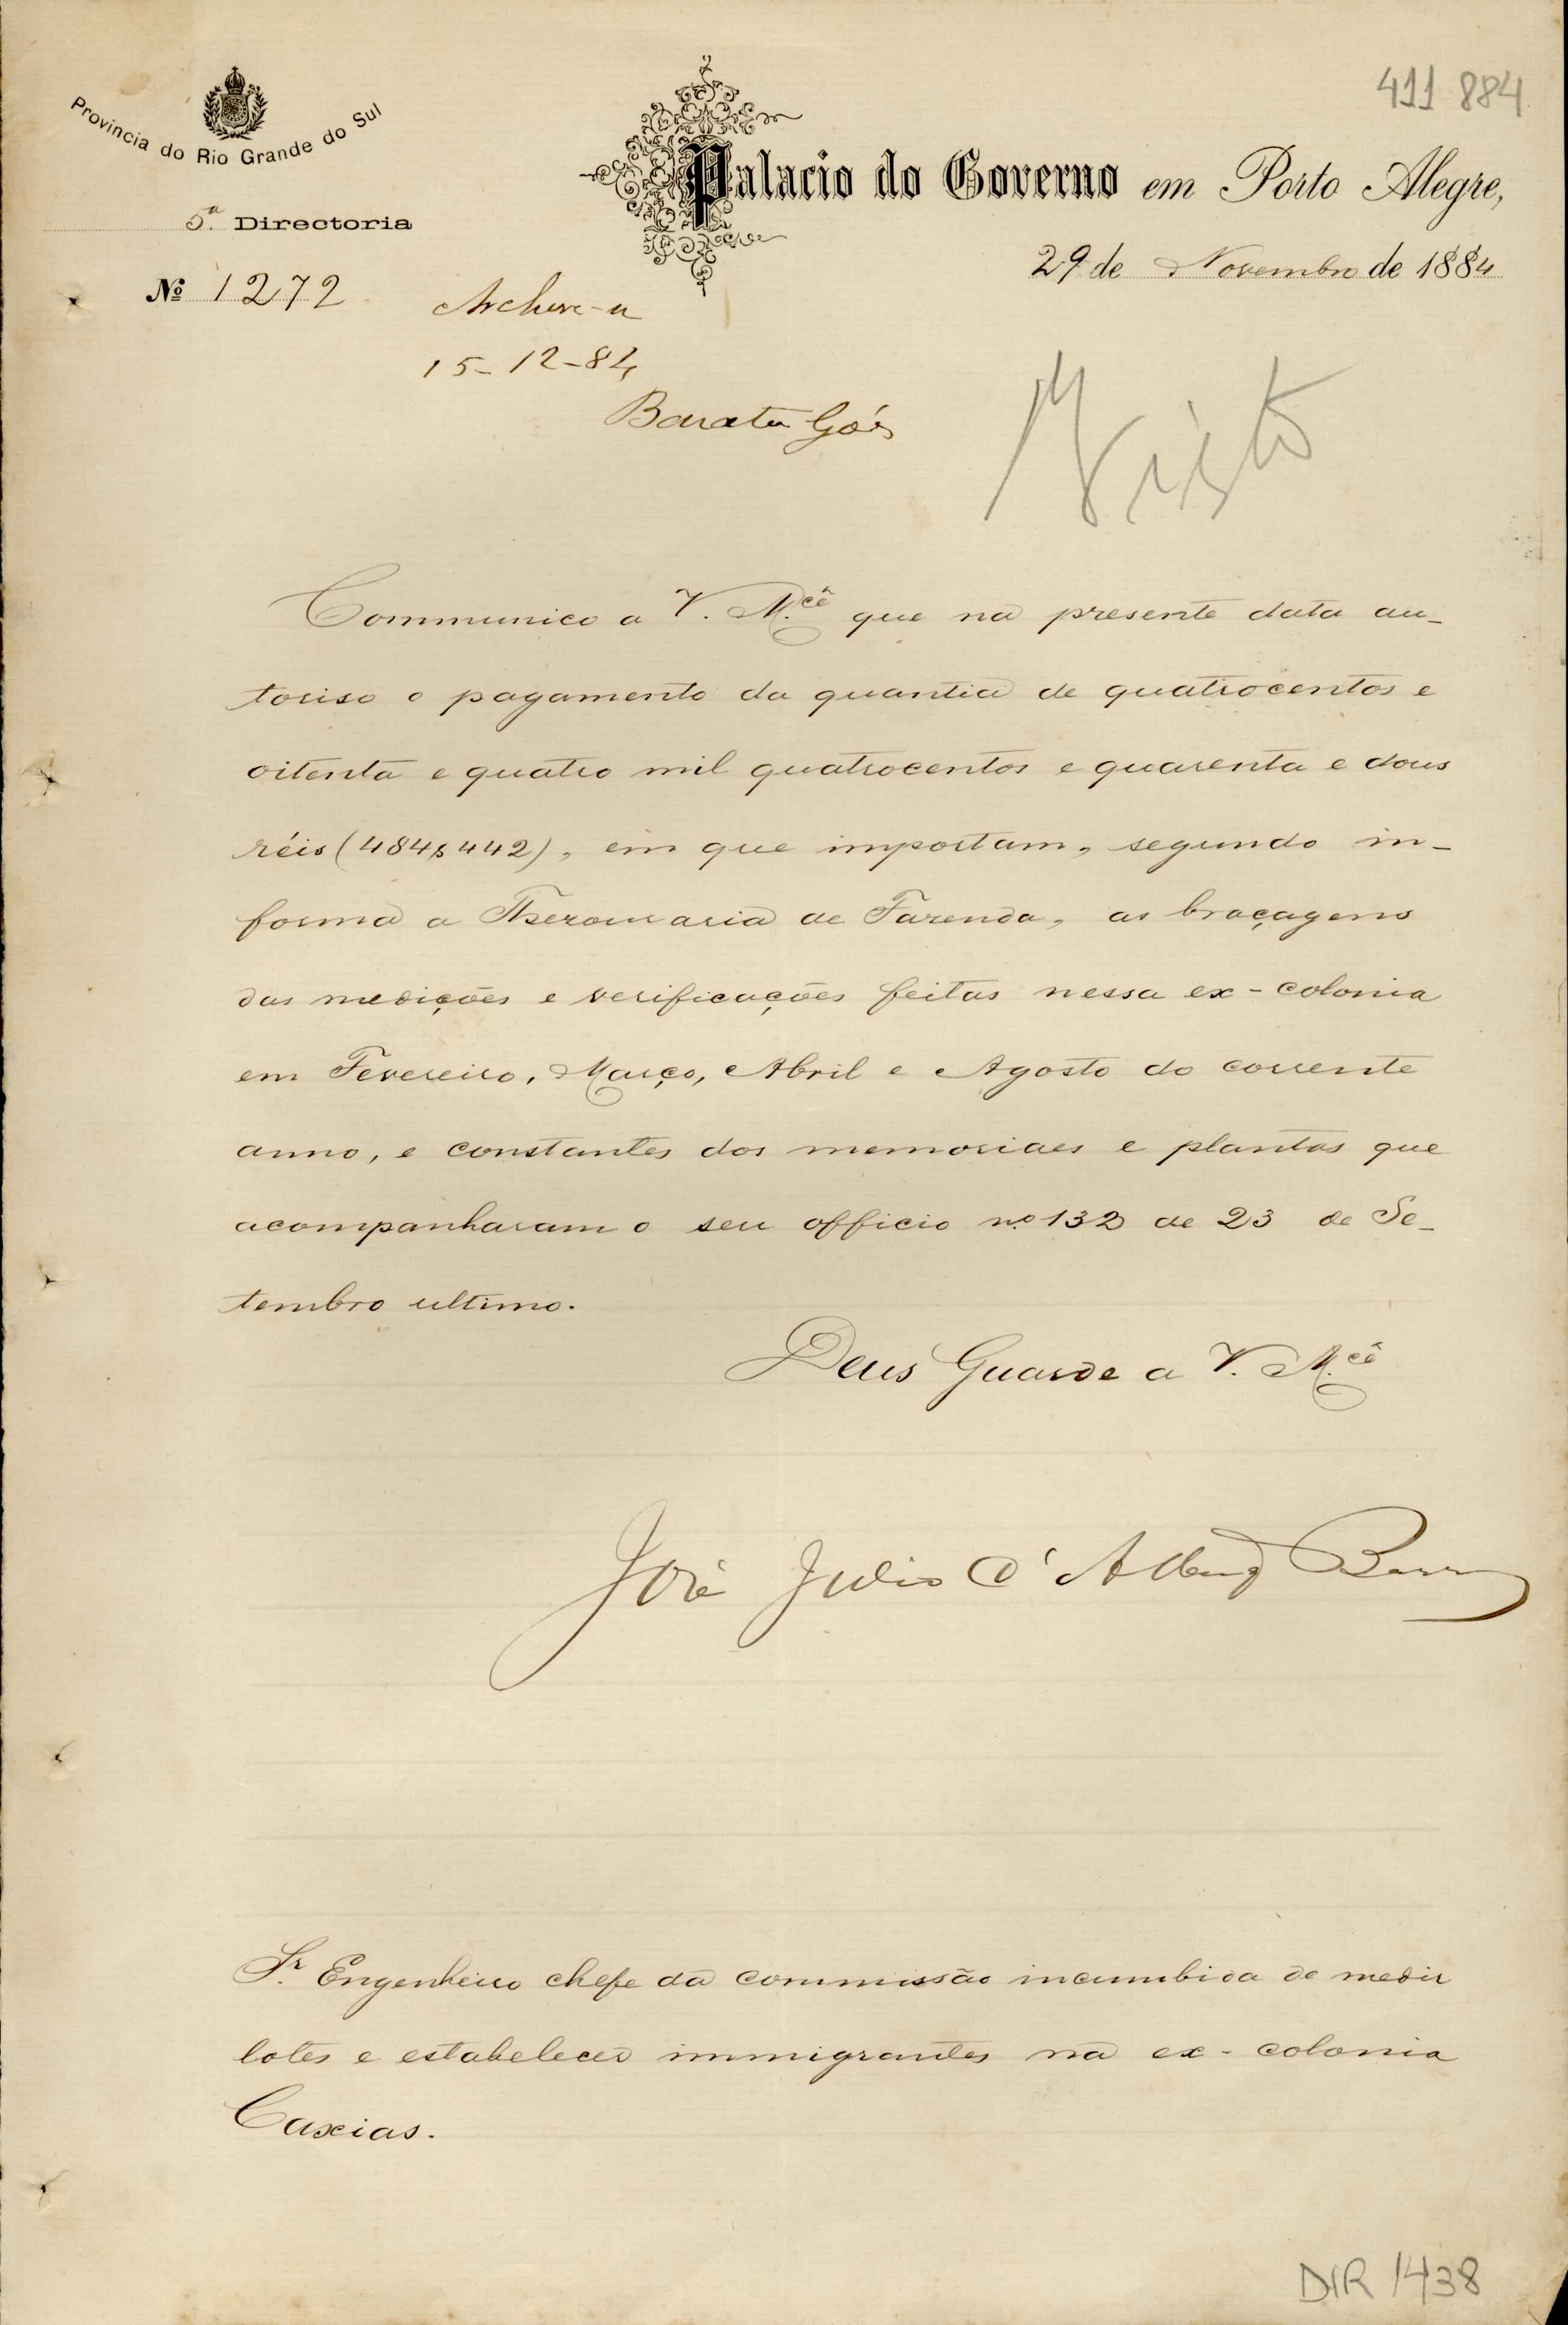 411 884
Provincia do Rio Grande do Sul
Palacio do Governo em Porto Alegre,
5.ª Directoria
29 de Novembro de 1884
Nº 1272
Archive-se
15-12-84
Barata Góes
Visto
Communico a V. M.cê que na presente data au-
toriso o pagamento da quantia de quatrocentos e
oitenta e quatro mil quatrocentos e quarenta e dous
réis (484$442), em que importam, segundo in-
forma a Thesouraria de Fazenda, as braçagens
das medições e verificações feitas nessa ex-colonia
em Fevereiro, Março, Abril e Agosto do corrente
anno, e constantes dos memoriaes e plantas que
acompanharam o seu officio nº 132 de 23 de Se-
tembro ultimo.
Deus Guarde a V. M.cê
José Julio d'Albuq Barros
Sr. Engenheiro chefe da commissão incumbida de medir
lotes e estabelecer immigrantes na ex-colonia
Caxias.
DIR 1438